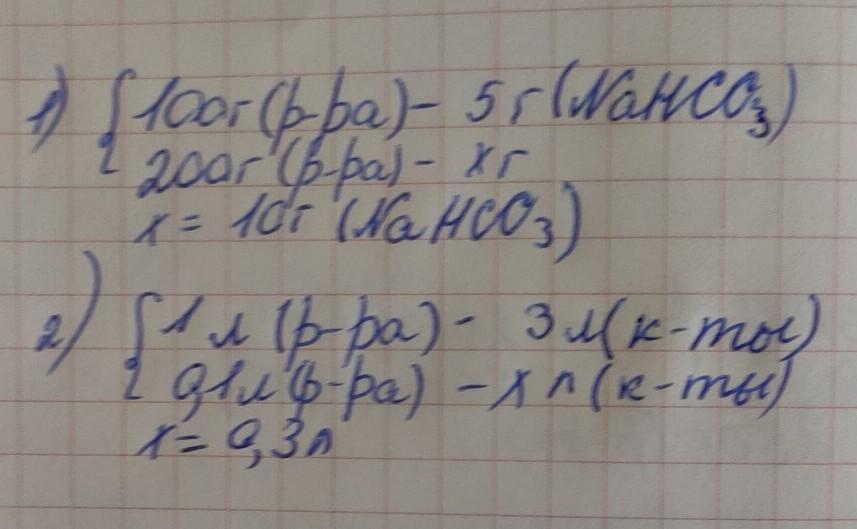 1) 100г (р-ра) - 5 г (NaHCO3)
200г (р-ра) - x г
x = 10г (NaHCO3)
2) 1 л (р-ра) - 3 л (к-ты)
0,1л (р-ра) - x л (к-ты)
x = 0,3л